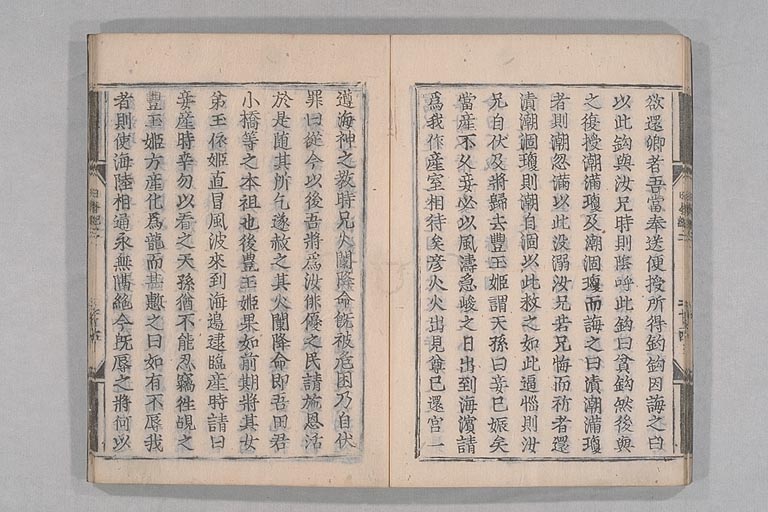 欲還鄉者吾當奉送便授所得鈎鈎因誨之曰
以此鈎與汝兄時則陰呼此鈎曰貧鈎然後與
之復授潮滿瓊及潮涸瓊而誨之曰漬潮滿瓊
者則潮忽滿以此没溺汝兄若兄悔而祈者還
漬潮涸瓊則潮自涸以此救之如此逼惱則汝
兄自伏及將歸去豐玉姬謂天孫曰妾已娠矣
當產不久妾必以風濤急峻之日出到海濱請
爲我作產室相待矣彦火火出見尊已還宮一
遵海神之教時兄火闌降命既被危困乃自伏
罪曰從今以後吾將爲汝俳優之民請施恩活
於是隨其所乞遂赦之其火闌降命即吾田君
小橋等之本祖也後豐玉姬果如前期將其女
弟玉依姬直冒風波來到海邉逮臨産時請曰
妾産時幸勿以看之天孫猶不能忍竊徃覘之
豐玉姬方産化爲龍而甚慙之曰如有不辱我
者則使海陸相通永無隔絶今既辱之將何以